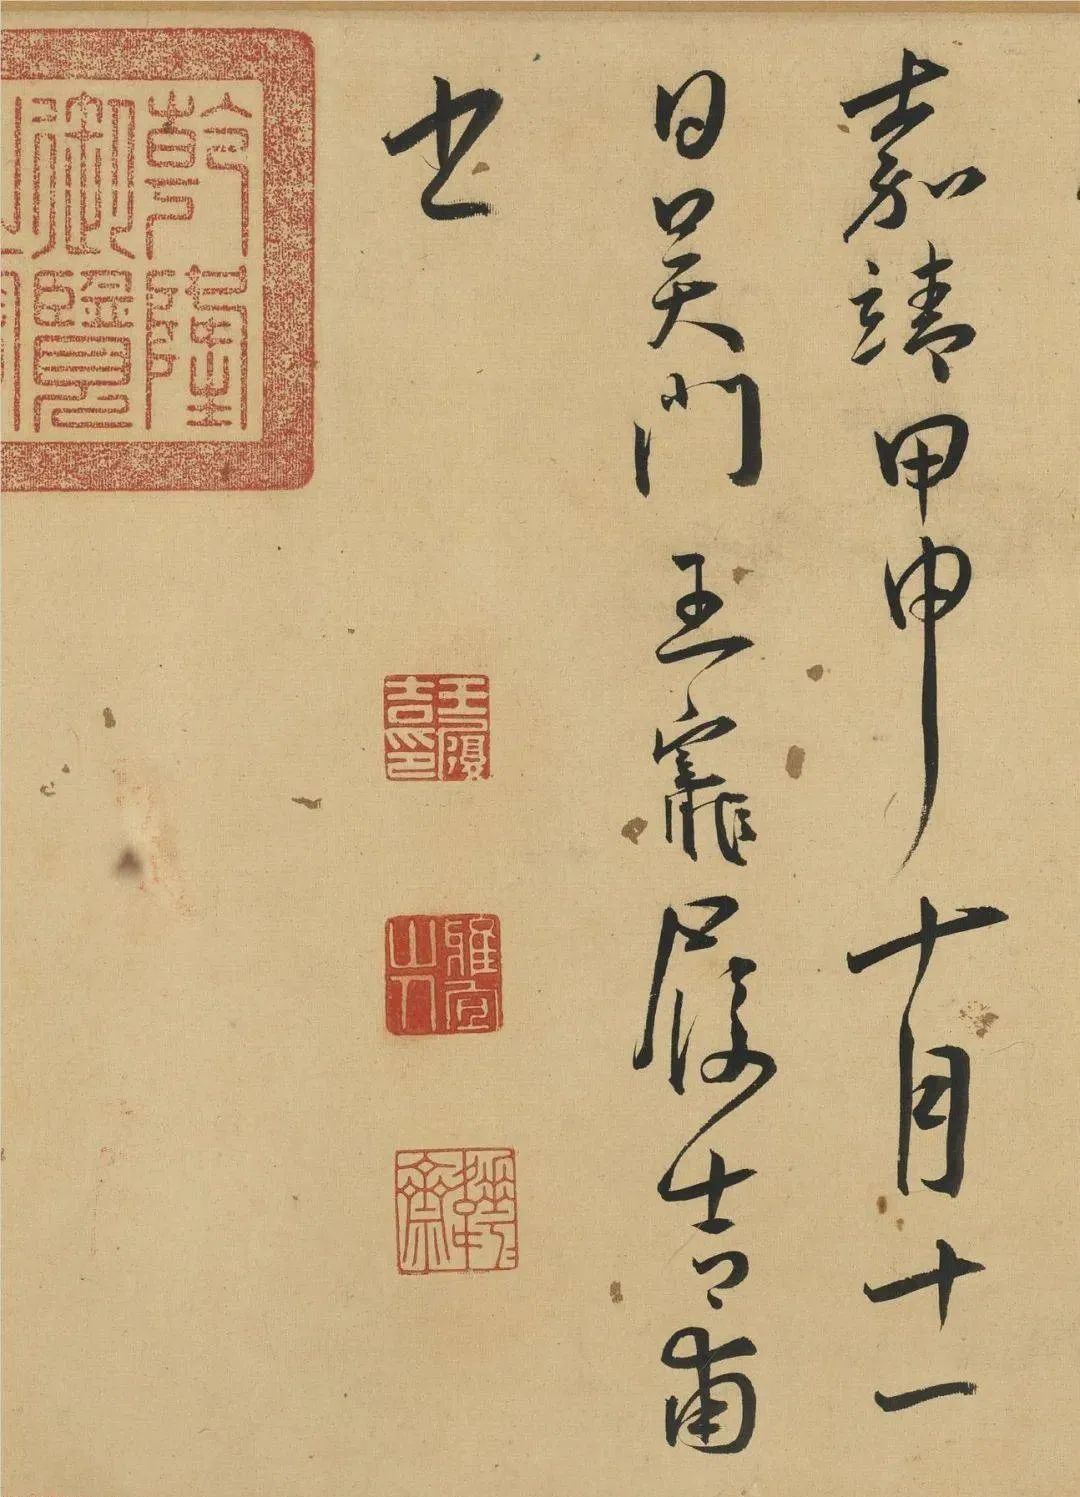 嘉靖甲申十月十一
日吴門王寵履吉甫
書
王履吉印
雅宜山人
乾隆御覽